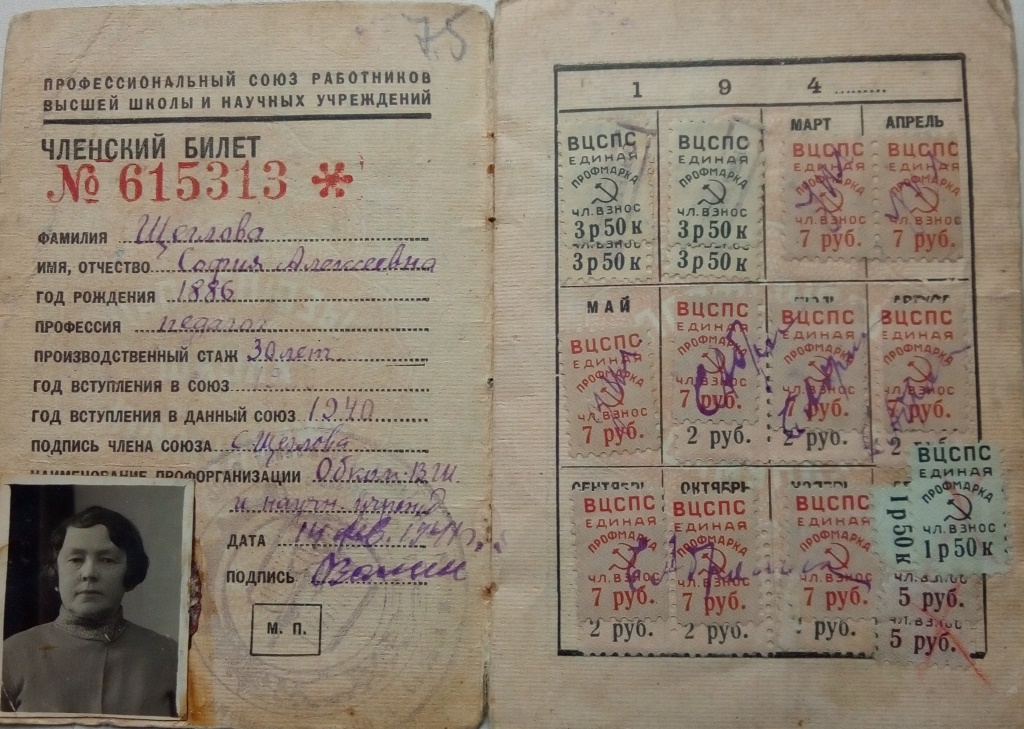 75
ПРОФЕССИОНАЛЬНЫЙ СОЮЗ РАБОТНИКОВ
ВЫСШЕЙ ШКОЛЫ И НАУЧНЫХ УЧРЕЖДЕНИЙ
ЧЛЕНСКИЙ БИЛЕТ
№ 615313 *
ФАМИЛИЯ Щеглова
ИМЯ, ОТЧЕСТВО София Алексеевна
ГОД РОЖДЕНИЯ 1886
ПРОФЕССИЯ педагог
ПРОИЗВОДСТВЕННЫЙ СТАЖ 30 лет
ГОД ВСТУПЛЕНИЯ В СОЮЗ
ГОД ВСТУПЛЕНИЯ В ДАННЫЙ СОЮЗ 1940
ПОДПИСЬ ЧЛЕНА СОЮЗА С Щеглова
НАИМЕНОВАНИЕ ПРОФОРГАНИЗАЦИИ Обком ВШ
и научн. учрежд
ДАТА 14
ПОДПИСЬ
М. П.
1 9 4
МАРТ АПРЕЛЬ
ВЦСПС ВЦСПС ВЦСПС ВЦСПС
ЕДИНАЯ ЕДИНАЯ ЕДИНАЯ ЕДИНАЯ
ПРОФМАРКА ПРОФМАРКА ПРОФМАРКА ПРОФМАРКА
ЧЛ. ВЗНОС ЧЛ. ВЗНОС ЧЛ. ВЗНОС ЧЛ. ВЗНОС
3 р 50 к 3 р 50 к 7 руб. 7 руб.
3 р 50 к 3 р 50 к
МАЙ АВГУСТ
ВЦСПС ВЦСПС ВЦСПС ВЦСПС
ЕДИНАЯ ЕДИНАЯ ЕДИНАЯ ЕДИНАЯ
ПРОФМАРКА ПРОФМАРКА ПРОФМАРКА ПРОФМАРКА
ЧЛ. ВЗНОС ЧЛ. ВЗНОС ЧЛ. ВЗНОС ЧЛ. ВЗНОС
7 руб. 7 руб. 7 руб. 7 руб.
2 руб. 2 руб. 2 руб.
СЕНТЯБРЬ ОКТЯБРЬ НОЯБРЬ
ВЦСПС ВЦСПС ВЦСПС ВЦСПС
ЕДИНАЯ ЕДИНАЯ ЕДИНАЯ ЕДИНАЯ
ПРОФМАРКА ПРОФМАРКА ПРОФМАРКА ПРОФМАРКА
ЧЛ. ВЗНОС ЧЛ. ВЗНОС ЧЛ. ВЗНОС ЧЛ. ВЗНОС
1 р 50 к 1 р 50 к
7 руб. 7 руб. 7 руб. 5 руб.
2 руб. 2 руб. 2 руб. ЧЛ. ВЗНОС
5 руб.